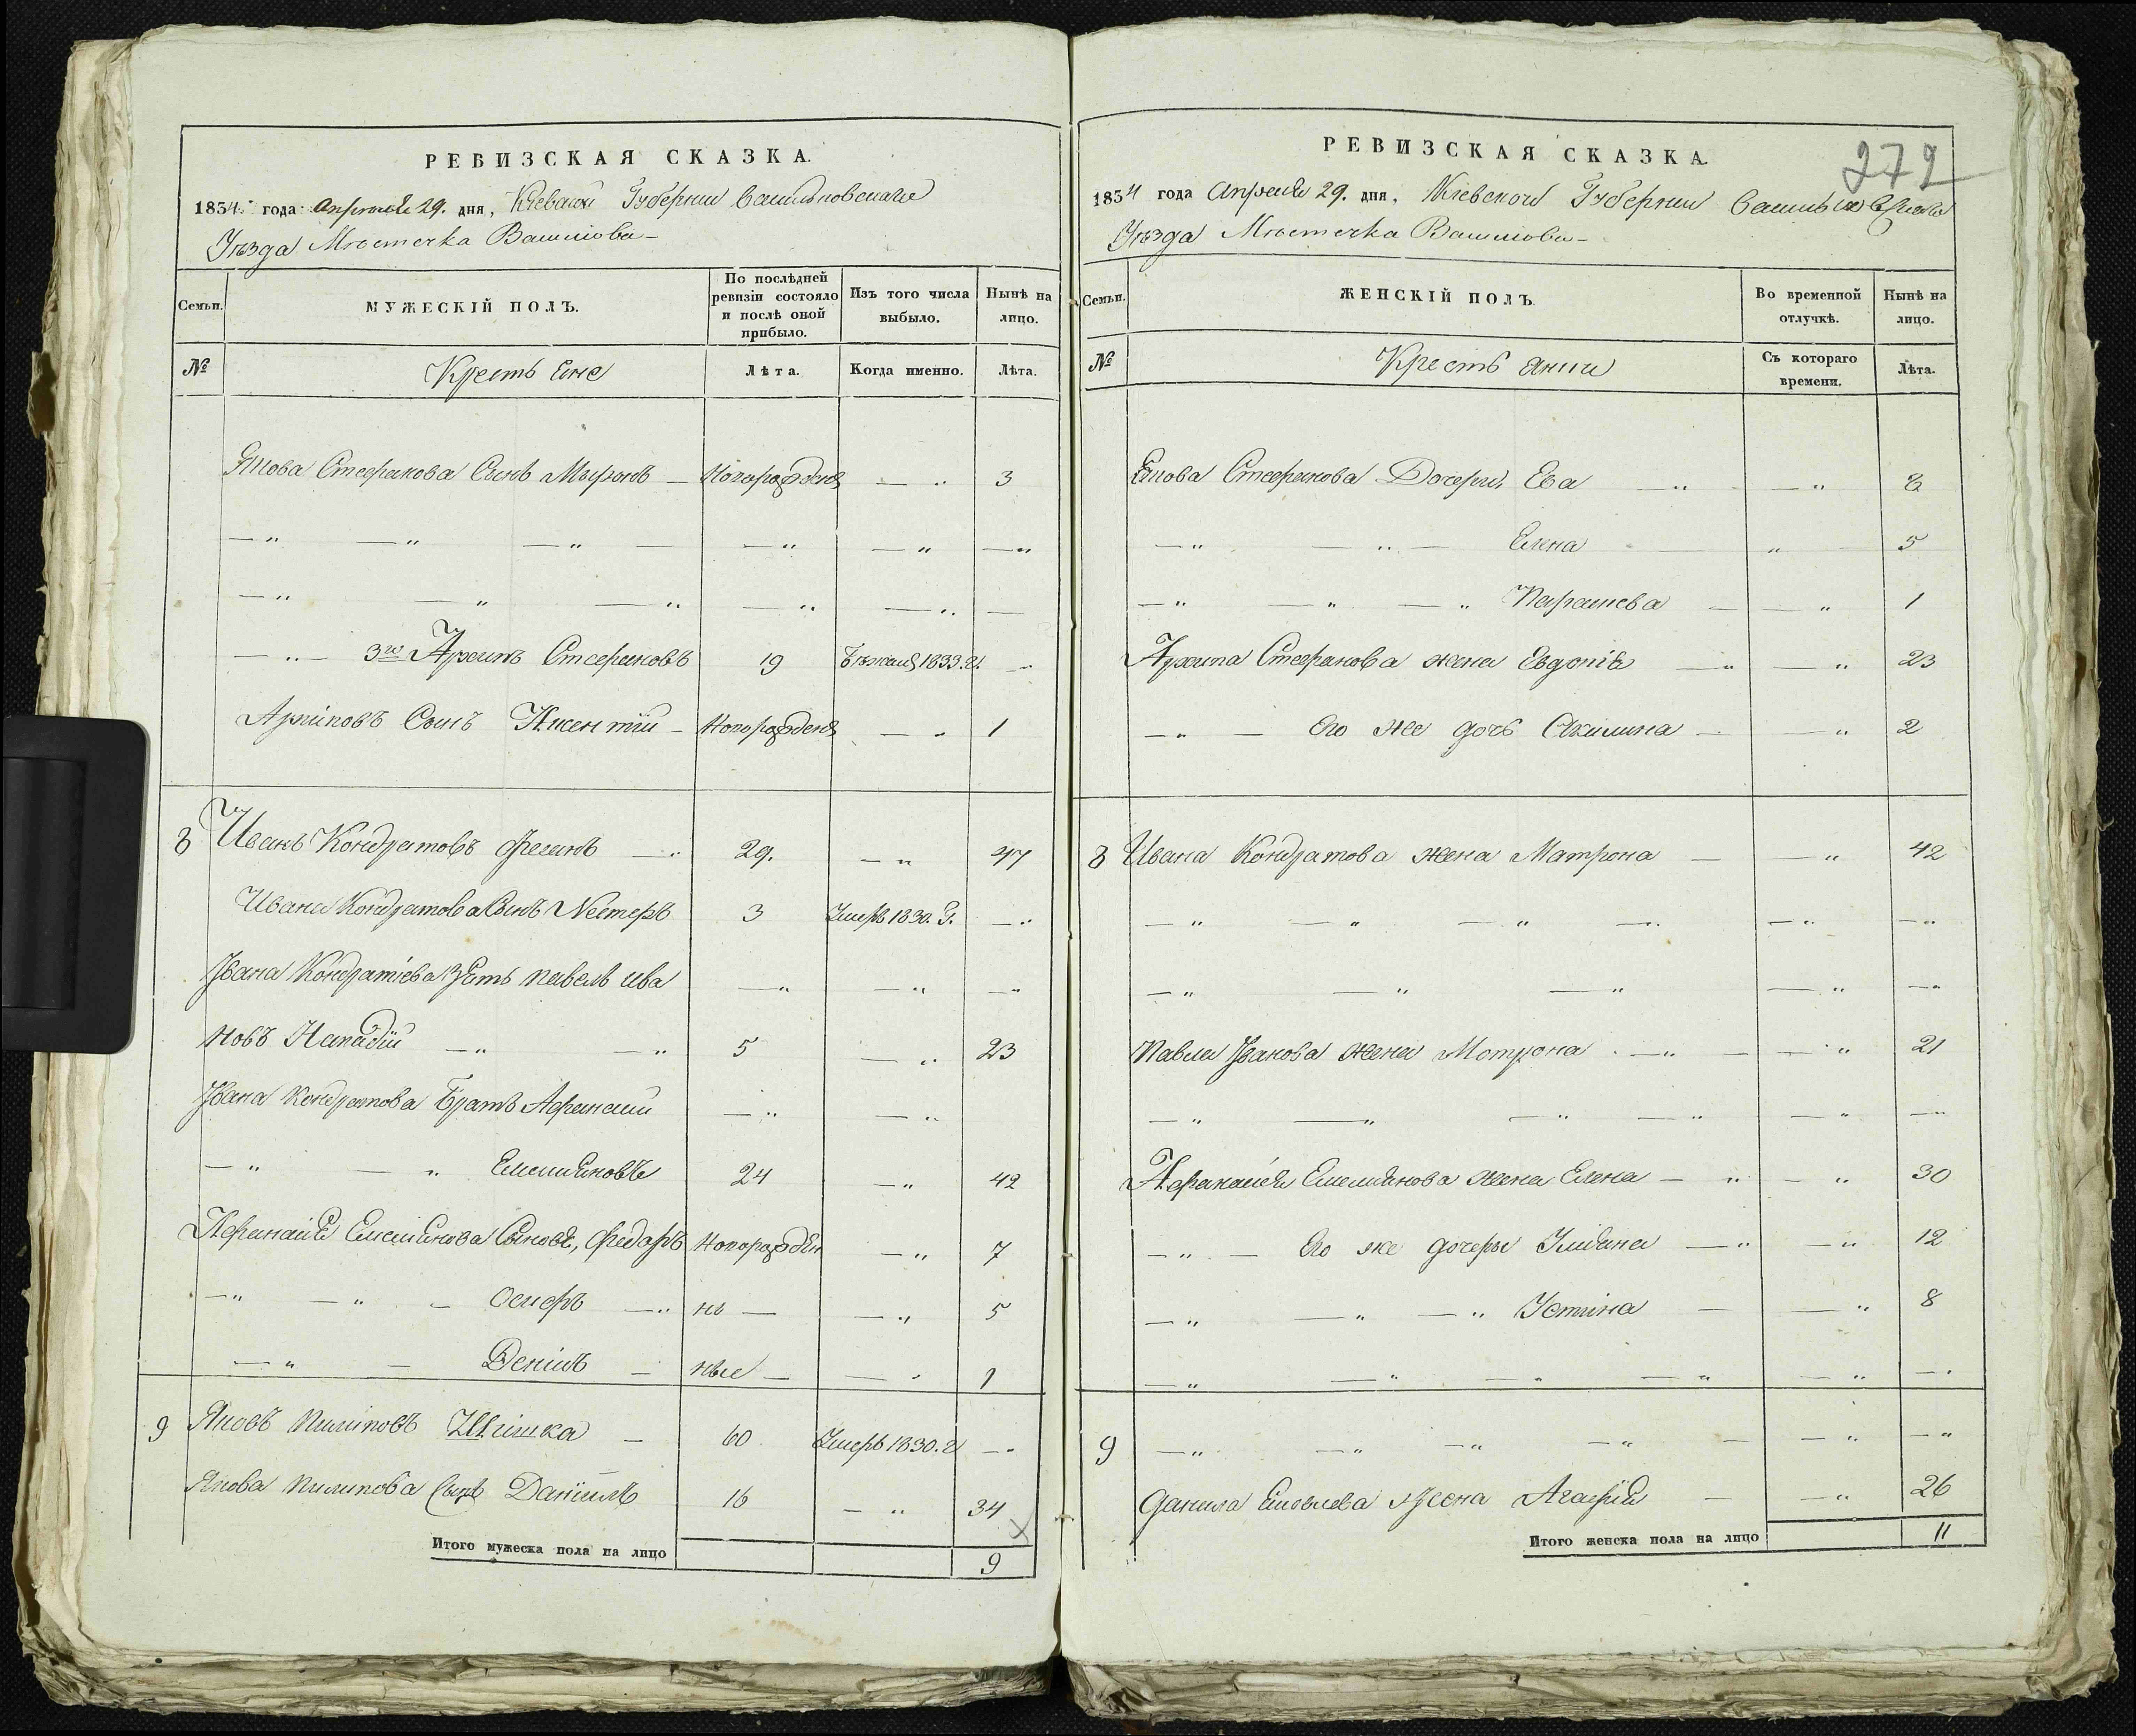 РЕВИЗСКАЯ СКАЗКА.
1834. года Апреля 29. дня, Киевской Губернии Васильковскаго
Уезда Местечка Василкова
Семьи. МУЖЕСКІЙ ПОЛЪ. По послѣдней ревизіи состояло и послѣ оной прибыло. Изъ того числа выбыло. Нынѣ на лицо.
№ Крестьяне Лѣта. Когда именно. Лѣта.
Якова Стефанова Сынъ Миронъ — Новорожденъ — „ 3
— „ — „ — „ — — „ — „ — „
— „ — „ — „ — „ — „ —
— „ — 3й Архипъ Стефановъ 19 Бежалъ 1833. г. — „
Архиповъ Сынъ — Новорожденъ — „ 1
8 Иванъ Кондратовъ — „ 29. — „ 47
Ивана Кондратова Сынъ Нестеръ 3 Умеръ 1830. г. — „
Івана Кондратіева Зять Павелъ Ива — „ — „ — „
новъ — „ — „ 5 — „ 23
Івана Кондратова Братъ Афанасий — „ — „
— „ — „ Емелияновъ 24 — „ 42
Афанасія Емелиянова Сыновя, Федоръ Новорожден — „ 7
— „ — „ — — „ ны — — „ 5
— „ — Денісъ — ные — — „ 1
9 Яковъ Пилиповъ — 60 Умеръ 1830. г — „
Якова Пилипова Сынъ Даніилъ 16 — „ 34
Итого мужеска пола на лицо 9
272
РЕВИЗСКАЯ СКАЗКА.
1834 года Апреля 29. дня, Киевской Губернии Васильковскаго
Уезда Местечка Василкова
Семьи. ЖЕНСКІЙ ПОЛЪ. Во временной отлучкѣ. Нынѣ на лицо.
№ Крестьянки Съ котораго времени. Лѣта.
Якова Стефанова Дочери, Ева — „ — „ 8
— „ — „ — Елена — „ — 5
— „ — „ — „ Параскева — — „ 1
Архипа Стефанова жена Евдокія — „ — „ 23
— „ — Его же дочь Акилина — — „ 2
8 Ивана Кондратова жена Матрона — — „ 42
— „ — „ — „ — „ — „ — „
— „ — „ — „ — „ — „
Павла Іванова жена Мотрона — „ — — „ 21
— „ — „ — „ — „ — „ — „
Афанасія Емелиянова жена Елена — „ — „ 30
— „ — Его же дочеры Улияна — „ — „ 12
— „ — „ — „ Устина — — „ 8
— „ — „ — „ — „ — „ — „
9 — „ — „ — „ — „ — — „ — „
Данила Яковлева жена Агафия — — „ 26
Итого женска пола на лицо 11